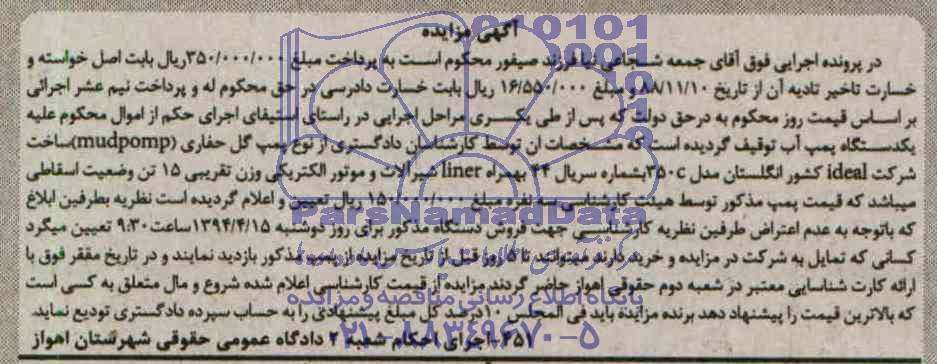 آگهی مزایده
در پرونده اجرایی فوق آقای جمعه شجاعی نیا فرزند صیفور محکوم است به پرداخت مبلغ ۳۵۰/۰۰۰/۰۰۰ریال بابت اصل خواسته و
خسارت تاخیر تادیه آن از تاریخ ۸۸/۱۱/۱۰ و مبلغ ۱۶/۵۵۰/۰۰۰ ریال بابت خسارت دادرسی در حق محکوم له و پرداخت نیم عشر اجرائی
بر اساس قیمت روز محکوم به درحق دولت که پس از طی یکسری مراحل اجرایی در راستای استیفای اجرای حکم از اموال محکوم علیه
یکدستگاه پمپ آب توقیف گردیده است که مشخصات ان توسط کارشناسان دادگستری از نوع پمپ گل حفاری (mudpomp)ساخت
شرکت ideal کشور انگلستان مدل ۳۵۰c بشماره سریال ۲۴ بهمراه liner شیرآلات و موتور الکتریکی وزن تقریبی ۱۵ تن وضعیت اسقاطی
میباشد که قیمت پمپ مذکور توسط هیئت کارشناسی سه نفره مبلغ ۱۵۰/۰۰۰/۰۰۰ ریال تعیین و اعلام گردیده است نظریه بطرفین ابلاغ
که باتوجه به عدم اعتراض طرفین نظریه کارشناسی جهت فروش دستگاه مذکور برای روز دوشنبه ۱۳۹۴/۴/۱۵ساعت۹:۳۰ تعیین میگرد
کسانی که تمایل به شرکت در مزایده و خرید دارند میتوانند تا ۵ روز قبل از تاریخ مزایده از پمپ مذکور بازدید نمایند و در تاریخ مقرر فوق با
ارائه کارت شناسایی معتبر در شعبه دوم حقوقی اهواز حاضر گردند مزایده از قیمت کارشناسی اعلام شده شروع و مال متعلق به کسی است
که بالاترین قیمت را پیشنهاد دهد برنده مزایده باید فی المجلس ۱۰درصد کل مبلغ پیشنهادی را به حساب سپرده دادگستری تودیع نماید.
۴۵۱-اجرای احکام شعبه ۲ دادگاه عمومی حقوقی شهرستان اهواز
ParsNamadData
پایگاه اطلاع رسانی مناقصه و مزایده
۰۲۱-۸۸۳۴۹۶۷۰-۵